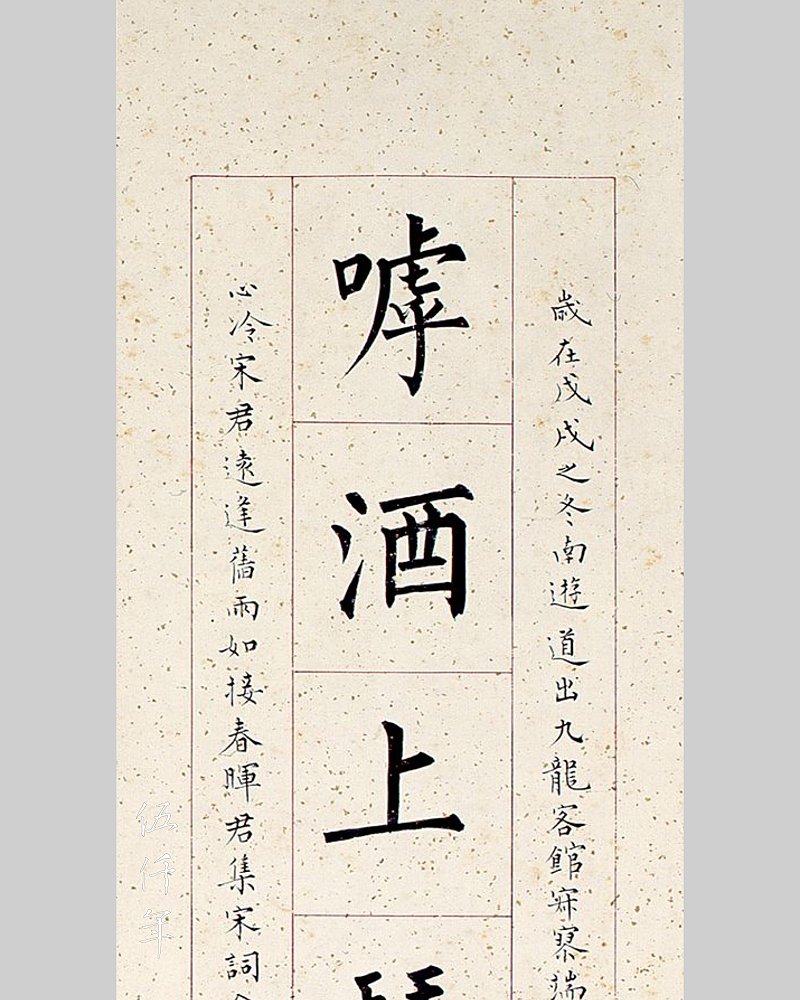 歳在戊戌之冬南遊道出九龍客館寂寥端
嘑酒上
心冷宋君遠逢舊雨如接春暉君集宋詞
伍仟年